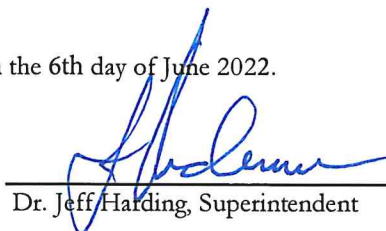 the 6th day of June 2022.
Dr. Jeff Harding, Superintendent